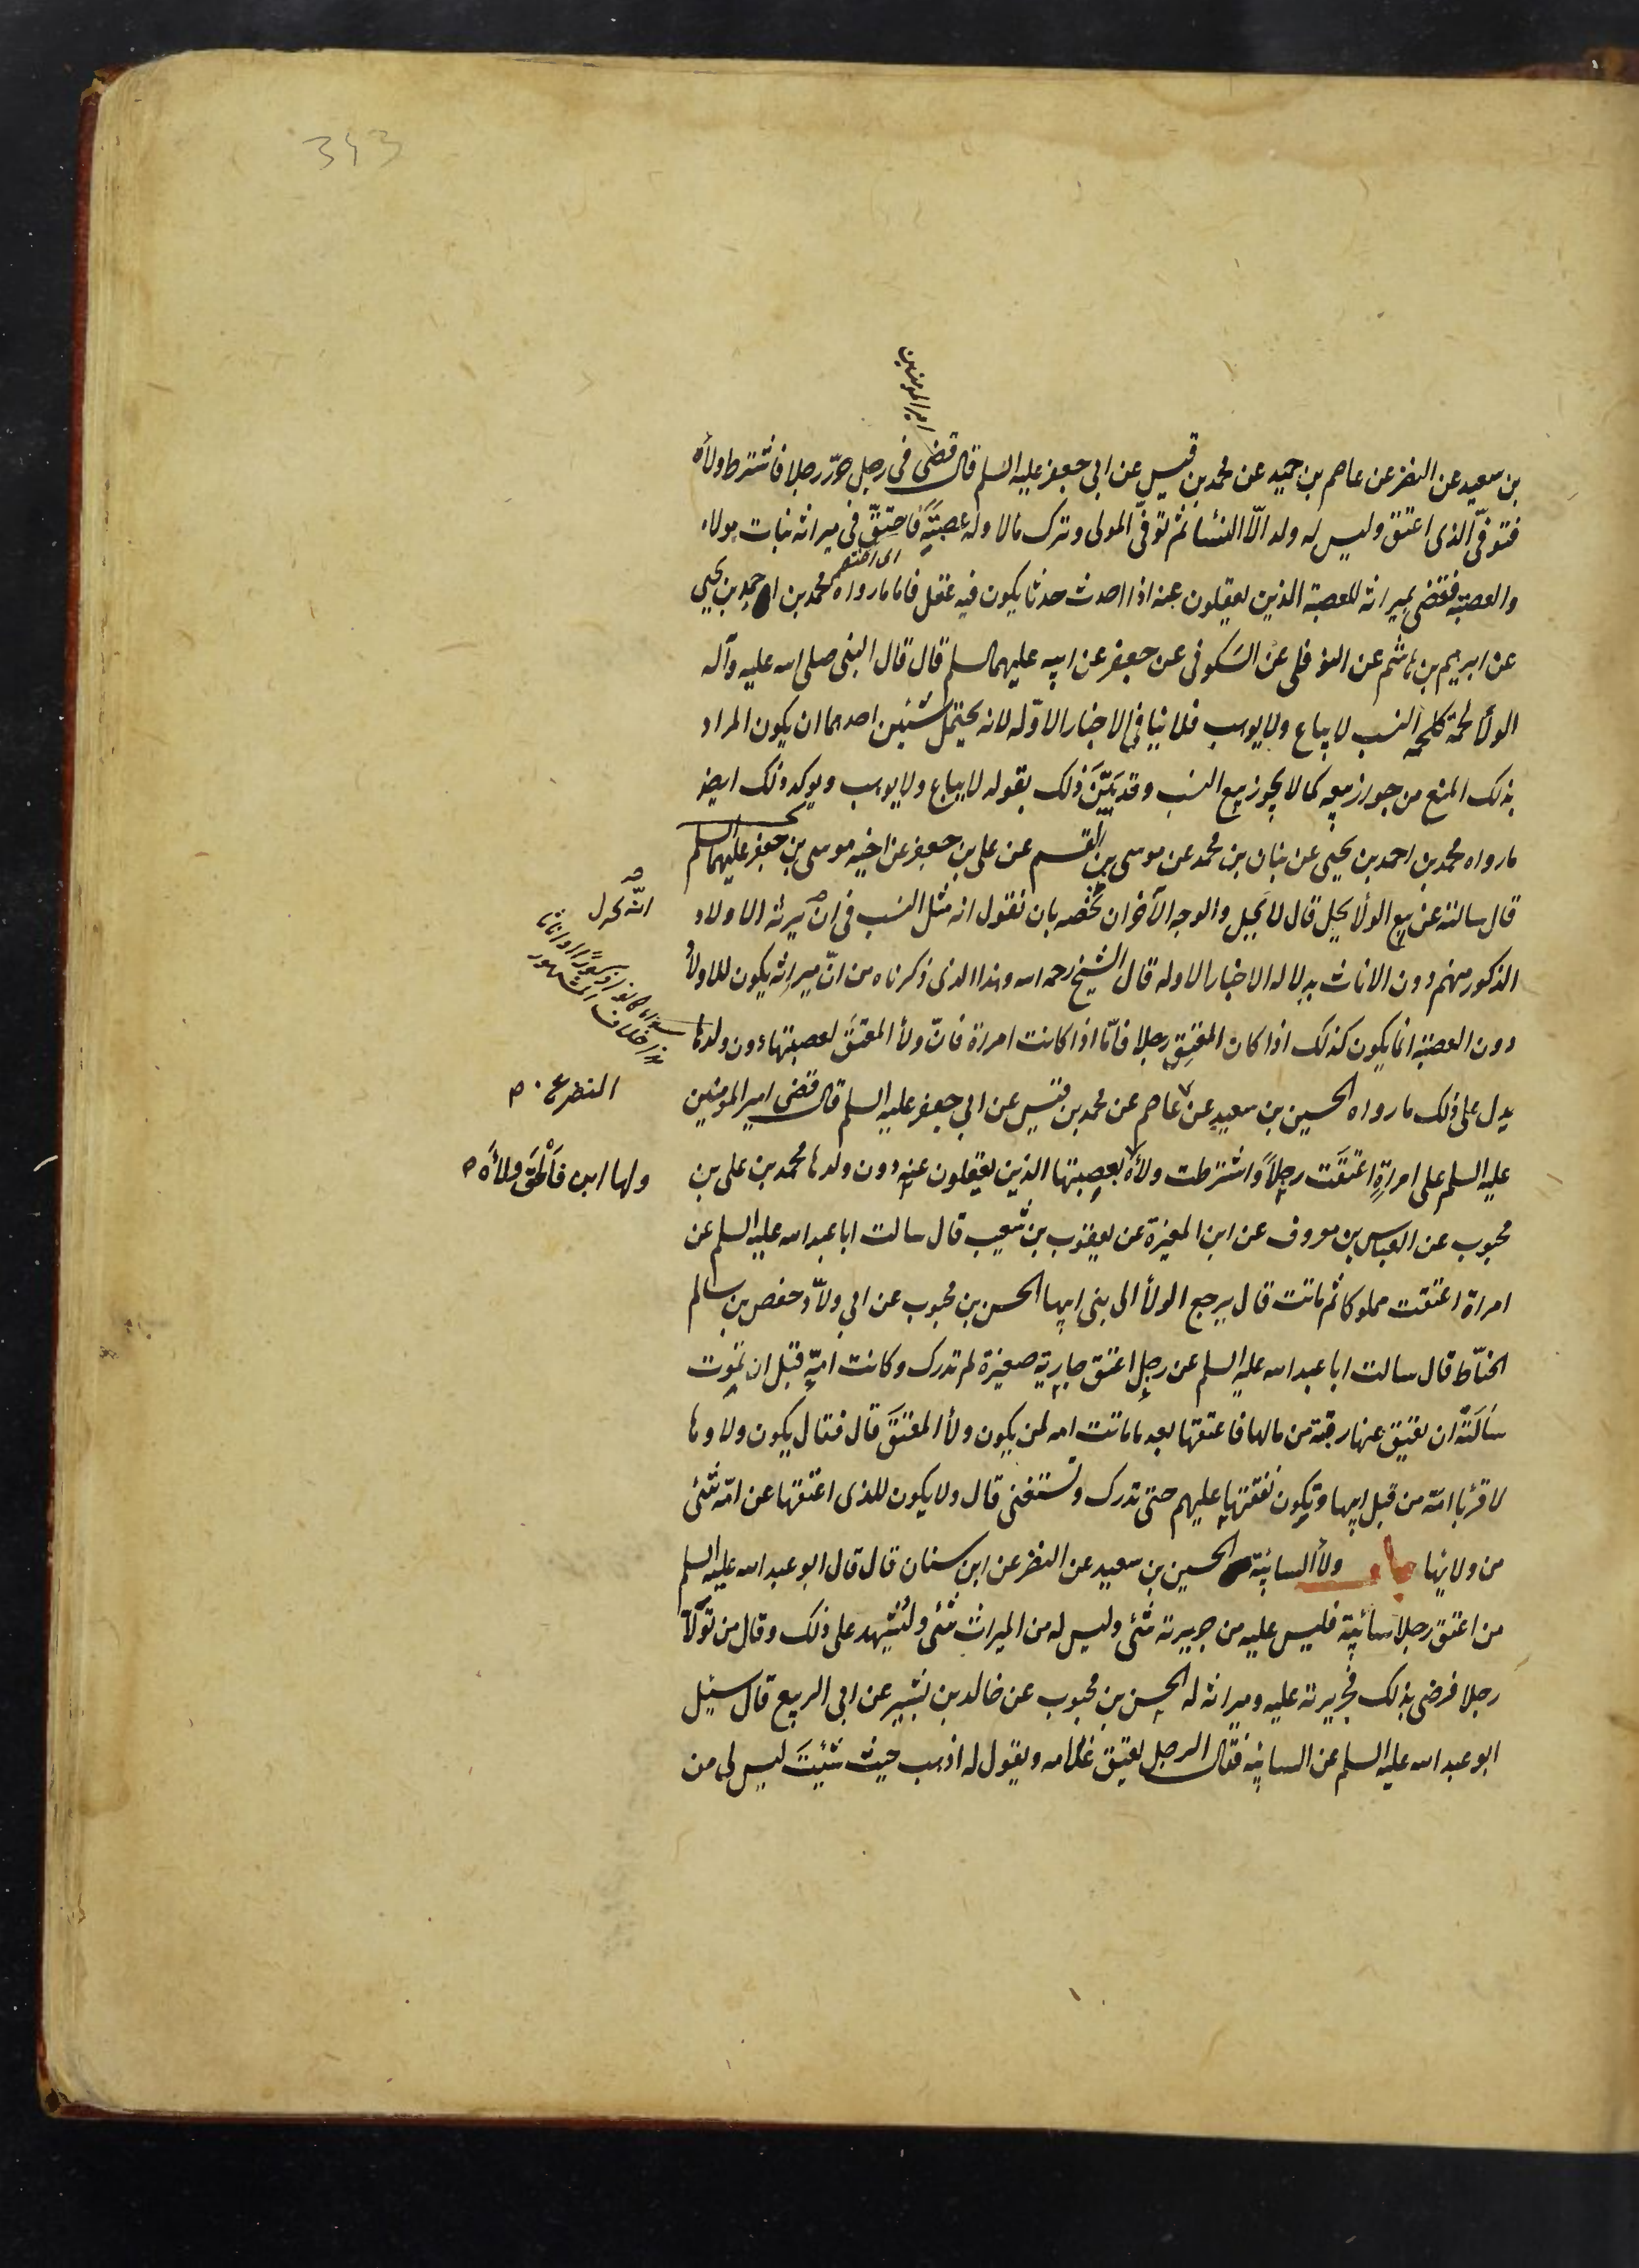 393
امير المومنين
بن سعيد عن النضر عن عاصم بن حميد عن محمد بن قيس عن ابى جعفر عليه السلم قال قضى فى رجل حرّر رجلا فاشترط ولأه
فتوفىّ الذى اعتق وليس له ولد الّا النسٓا ثم توفىّ المولى وترك مالا وله عصبة فاحتقّ فى ميراثه بنات مولاه
اى اختصم
والعصبة فقضى بميراثه للعصبة الذين يعقلون عنه اذا احدث حدثا يكون فيه عقل فاما ما رواه محمد بن احمد بن يحيى
عن ابرهيم بن هاشم عن النوفلى عن السكونى عن جعفر عن ابيه عليهما السلم قال قال النبى صلى الله عليه وآله
الولأ لحمة كلحمة النسب لا يباع ولا يوهب فلا ينافى الاخبار الاوّله لانه يحتمل شيئين احدهما ان يكون المراد
بذلك المنع من جواز بيعه كما لا يجوز بيع النسب وقد بيّن ذلك بقوله لا يباع ولا يوهب ويوكد ذلك ايضا
ما رواه محمد بن احمد بن يحيى عن بنان بن محمد عن موسى بن القسم عن على بن جعفر عن اخيه موسى بن جعفر عليهما السلم
قال سالته عن بيع الولأ يحل قال لا يحل والوجه الآخر ان نخصه بان نقول انه مثل النسب فى ان يرثه الاولاد
الذكور منهم دون الاناث بدلاله الاخبار الاوله قال الشيخ رحمه الله وهذا الذى ذكرناه من انّ ميراثه يكون للاولاد
سواء كانوا ذكورًا او اناثا
هذا خلاف المشهور
دون العصبة انما يكون كذلك اذا كان المعتِق رجلا فامّا اذا كانت امراة فانّ ولأ المعتَق لعصبتها دون ولدها
يدل على ذلك ما رواه الحسين بن سعيد عن عاصم عن محمد بن قيس عن ابى جعفر عليه السلم قال قضى امير المومنين
النضر ع
عليه السلم على امراةٍ اعتقَت رجلاً واشترطت ولأه لعصبتها الذين يعقلون عنه دون ولدها محمد بن على بن
ولها ابن فاَلْحَقَ ولأَه
محبوب عن العباس بن معروف عن ابن المغيرة عن يعقوب بن شعيب قال سالت ابا عبد الله عليه السلم عن
امراة اعتقت مملوكا ثم ماتت قال يرجع الولأ الى بنى ابيها الحسن بن محبوب عن ابى ولّاد حفص بن سالم
الحنّاط قال سالت ابا عبد الله عليه السلم عن رجل اعتق جارية صغيرة لم تدرك وكانت امّه قبل ان تموت
سَالَتهُ ان يعتق عنها رقبة من مالها فاعتقها بعد ما ماتت امه لمن يكون ولأ المعتَق قال فقال يكون ولاوها
لاقربا امّه من قبل ابيها وتكون نفقتها عليهم حتى تدرك وتستغنى قال ولا يكون للذى اعتقها عن امّه شئى
من ولائها باب ولأ السائبة الحسين بن سعيد عن النضر عن ابن سنان قال قال ابو عبد الله عليه السلم
من اعتق رجلا سائبة فليس عليه من جريرته شئى وليس له من الميراث شئى وليُشهد على ذلك وقال من تولّا
رجلا فرضى بذلك فجريرته عليه وميراثه له الحسن بن محبوب عن خالد بن بشير عن ابى الربيع قال سئل
ابو عبد الله عليه السلم عن السائبه فقال الرجل يعتق غلامه ويقول له اذهب حيث شئيتَ ليس لى من